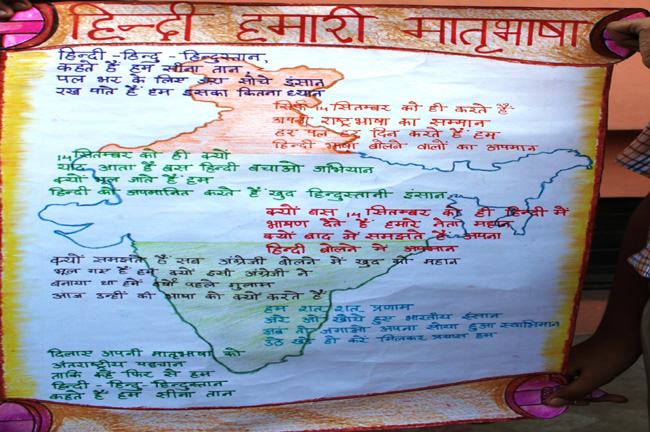 हिन्दी हमारी मातृभाषा
हिन्दी - हिन्दु - हिन्दुस्तान,
कहते हैं हम सीना तान
पल भर के लिए जरा सोचे इंसान
रख पाते हैं हम इसका कितना ध्यान
सिर्फ 14 सितम्बर को ही करते है
अपनी राष्ट्रभाषा का सम्मान
हर पल हर दिन करते हैं हम
हिन्दी भाषा बोलने वालों का अपमान
14 सितम्बर को ही क्यों
याद आता है बस हिन्दी बचाओ अभियान
क्यों भूल जाते हैं हम
हिन्दी को अपमानित करते हैं खुद हिन्दुस्तानी इंसान
क्यों बस 14 सितम्बर को ही हिन्दी में
भाषण देते हैं हमारे नेता महान
क्यों बाद में समझते हैं अपना
हिन्दी बोलने में अपमान
क्यों समझते हैं सब अंग्रेजी बोलने में खुद को महान
भूल गए हैं हम क्यों इसी अंग्रेजी ने
बनाया था हमें वर्षों पहले गुलाम
आज उन्हीं की भाषा को क्यों करते हैं
हम शत् शत् प्रणाम
अरे ओ खोये हुए भारतीय इंसान
अब तो जगाओ अपना सोया हुआ स्वाभिमान
उठ खड़े हो करें मिलकर प्रयास हम
दिलाए अपनी मातृभाषा को
अंतराष्ट्रीय पहचान
ताकि कहे फिर से हम
हिन्दी - हिन्दु - हिन्दुस्तान
कहते हैं हम सीना तान